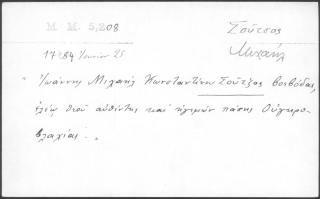 Μ. Μ. 5,208
Σούτσος
Μιχαήλ
1784 Ιουνίου 25
Ἰωάννης Μιχαήλ Κωνσταντίνου Σοῦτζος βοεβόδας,
ἐλέῳ θεοῦ αὐθέντης καί ἡγεμών πάσης Οὐγκρο-
βλαχίας.